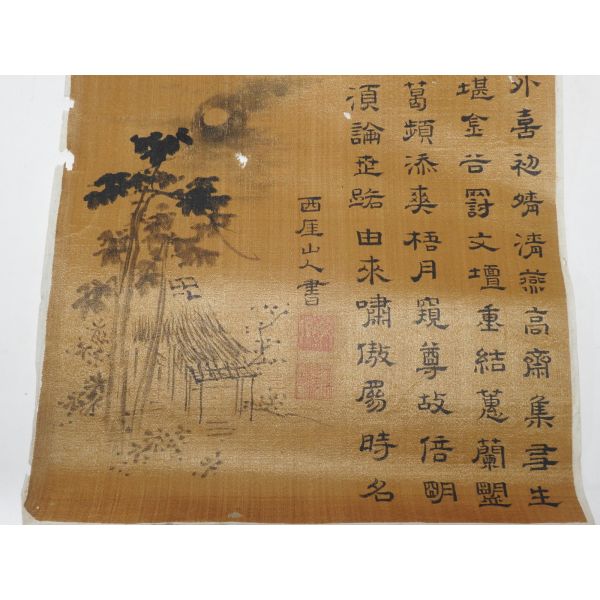 外喜初晴清燕高齋集友生
堪金谷罰文壇重結蕙蘭盟
葛頻添爽梧月窺尊故倍明
須論路由來嘯傲時名
西厓山人書